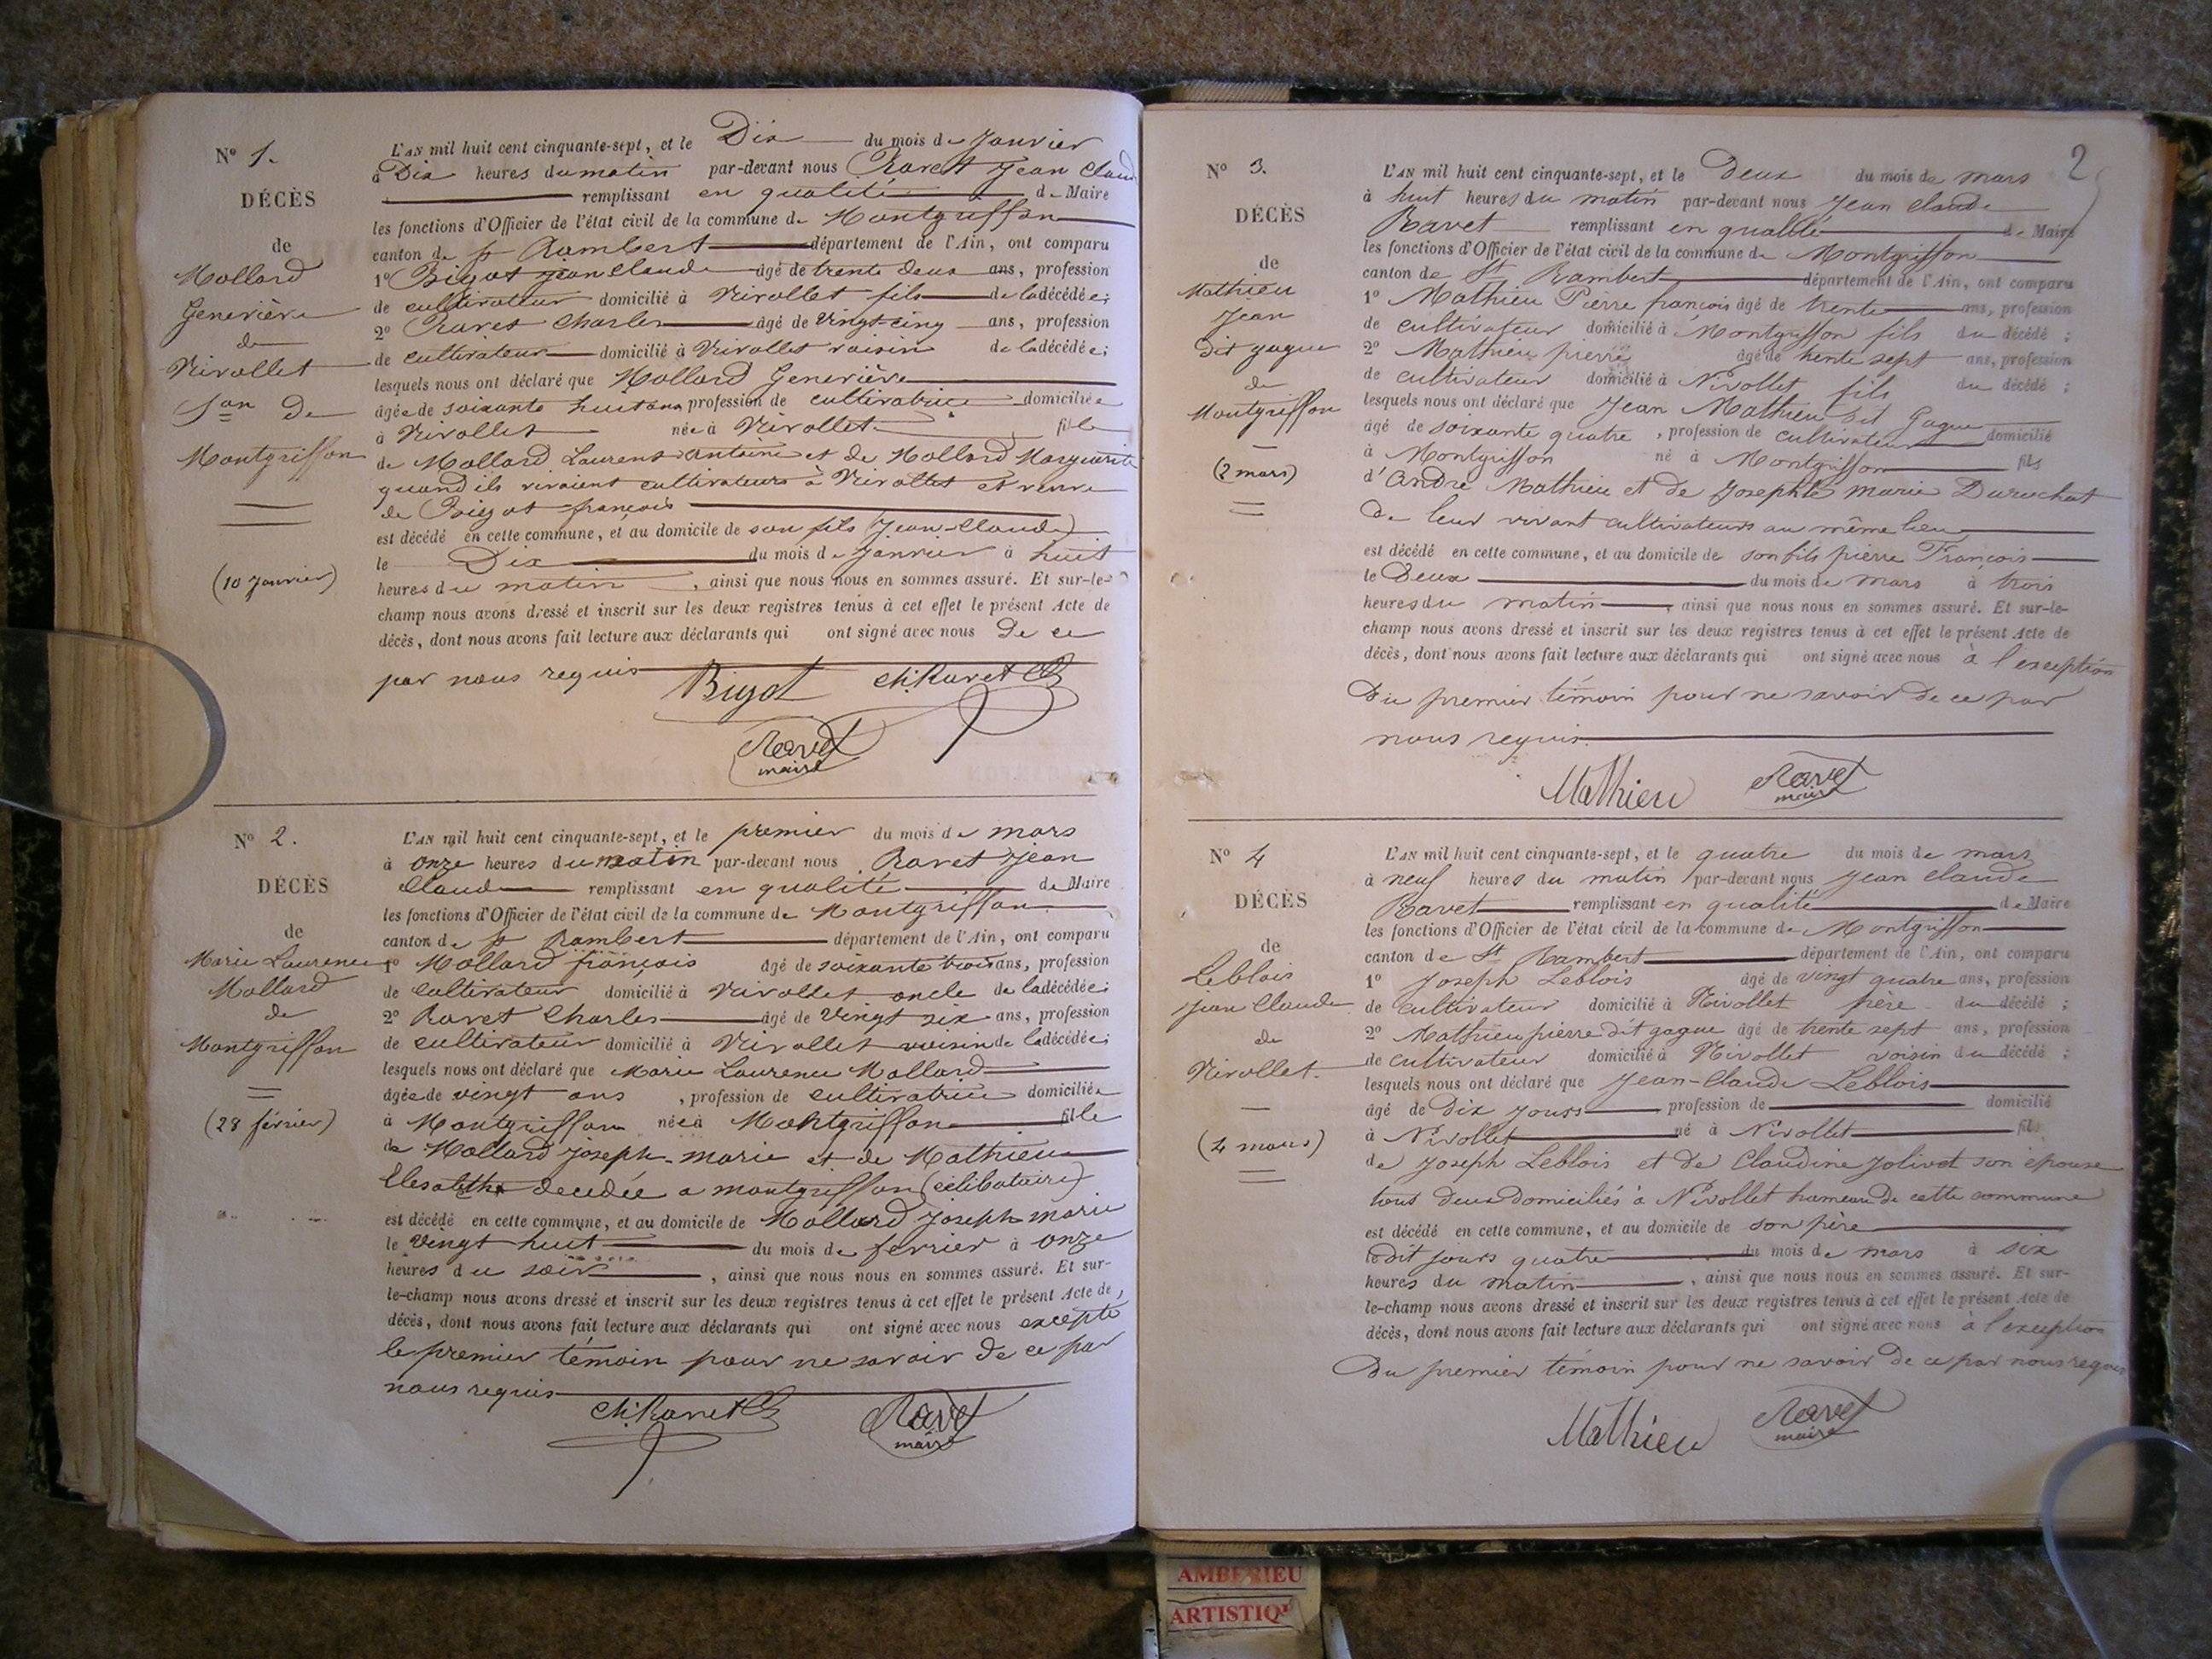 N° 1.
DÉCÈS
de
Mollard
Genevière
de
Nivollet
son de
Montgriffon
(10 Janvier)
L'AN mil huit cent cinquante-sept, et le Dix du mois de Janvier
à Dix heures du matin par-devant nous Ravet Jean Claud
remplissant en qualité de Maire
les fonctions d'Officier de l'état civil de la commune de Montgriffon
canton de St Rambert département de l'Ain, ont comparu
1° Bigot Jean Claude âgé de trente deux ans, profession
de cultivateur domicilié à Nivollet fils de la décédée;
2° Ravet Charles âgé de vingt-cinq ans, profession
de cultivateur domicilié à Nivollet voisin de la décédée;
lesquels nous ont déclaré que Mollard Genevière
âgée de soixante huit ans profession de cultivatrice domiciliée
à Nivollet née à Nivollet fille
de Mollard Laurent Antoine et de Mollard Marguerite
quand ils vivaient cultivateurs à Nivollet et veuve
de Bigot françois
est décédé en cette commune, et au domicile de son fils (Jean-Claude)
le Dix du mois de Janvier à huit
heures du matin, ainsi que nous nous en sommes assuré. Et sur-le-
champ nous avons dressé et inscrit sur les deux registres tenus à cet effet le présent Acte de
décès, dont nous avons fait lecture aux déclarants qui ont signé avec nous de ce
par nous requis
Bigot ch. Ravet
Ravet
maire
N° 2.
DÉCÈS
de
Marie Laurence
Mollard
de
Montgriffon
(28 février)
L'AN mil huit cent cinquante-sept, et le premier du mois de mars
à onze heures du matin par-devant nous Ravet Jean
Claude remplissant en qualité de Maire
les fonctions d'Officier de l'état civil de la commune de Montgriffon
canton de St Rambert département de l'Ain, ont comparu
1° Mollard françois âgé de soixante trois ans, profession
de cultivateur domicilié à Nivollet oncle de la décédée;
2° Ravet Charles âgé de vingt six ans, profession
de cultivateur domicilié à Nivollet voisin de la décédée;
lesquels nous ont déclaré que Marie Laurence Mollard
âgée de vingt ans, profession de cultivatrice domiciliée
à Montgriffon née à Montgriffon fille
de Mollard Joseph-marie et de Mathieu
Elesabeth decedée a montgriffon (célibataire)
est décédé en cette commune, et au domicile de Mollard Joseph marie
le vingt huit du mois de fevrier à onze
heures du soir, ainsi que nous nous en sommes assuré. Et sur-
le-champ nous avons dressé et inscrit sur les deux registres tenus à cet effet le présent Acte de
décès, dont nous avons fait lecture aux déclarants qui ont signé avec nous excepté
le premier témoin pour ne savoir de ce par
nous requis
ch. Ravet Ravet
maire
2
N° 3.
DÉCÈS
de
Mathieu
Jean
dit gagu
de
Montgriffon
(2 mars)
L'AN mil huit cent cinquante-sept, et le Deux du mois de mars
à huit heures du matin par-devant nous Jean Claude
Ravet remplissant en qualité de Maire
les fonctions d'Officier de l'état civil de la commune de Montgriffon
canton de St Rambert département de l'Ain, ont comparu
1° Mathieu Pierre françois âgé de trente ans, profession
de cultivateur domicilié à Montgriffon fils du décédé;
2° Mathieu pierre âgé de trente sept ans, profession
de cultivateur domicilié à Nivollet fils du décédé;
lesquels nous ont déclaré que Jean Mathieu dit Gagu
âgé de soixante quatre, profession de cultivateur domicilié
à Montgriffon né à Montgriffon fils
d'André Mathieu et de Josephte marie Durochat
de leur vivant cultivateurs au même lieu
est décédé en cette commune, et au domicile de son fils pierre François
le Deux du mois de mars à trois
heures du matin, ainsi que nous nous en sommes assuré. Et sur-le-
champ nous avons dressé et inscrit sur les deux registres tenus à cet effet le présent Acte de
décès, dont nous avons fait lecture aux déclarants qui ont signé avec nous à l'exception
du premier témoin pour ne savoir de ce par
nous requis.
Mathieu Ravet
maire
N° 4
DÉCÈS
de
Leblois
Jean Claude
de
Nivollet.
(4 mars)
L'AN mil huit cent cinquante-sept, et le quatre du mois de mars
à neuf heures du matin par-devant nous Jean Claude
Ravet remplissant en qualité de Maire
les fonctions d'Officier de l'état civil de la commune de Montgriffon
canton de St Rambert département de l'Ain, ont comparu
1° Joseph Leblois âgé de vingt quatre ans, profession
de cultivateur domicilié à Nivollet père du décédé;
2° Mathieu pierre dit gagu âgé de trente sept ans, profession
de cultivateur domicilié à Nivollet voisin du décédé;
lesquels nous ont déclaré que Jean-Claude Leblois
âgé de dix jours profession de domicilié
à Nivollet né à Nivollet fils
de Joseph Leblois et de Claudine Jolivet son épouse
tous deux domiciliés à Nivollet hameau de cette commune
est décédé en cette commune, et au domicile de son père
ledit jours quatre du mois de mars à six
heures du matin, ainsi que nous nous en sommes assuré. Et sur-
le-champ nous avons dressé et inscrit sur les deux registres tenus à cet effet le présent Acte de
décès, dont nous avons fait lecture aux déclarants qui ont signé avec nous à l'exception
du premier témoin pour ne savoir de ce par nous requis
Mathieu Ravet
maire
AMBERIEU
ARTISTIQUE